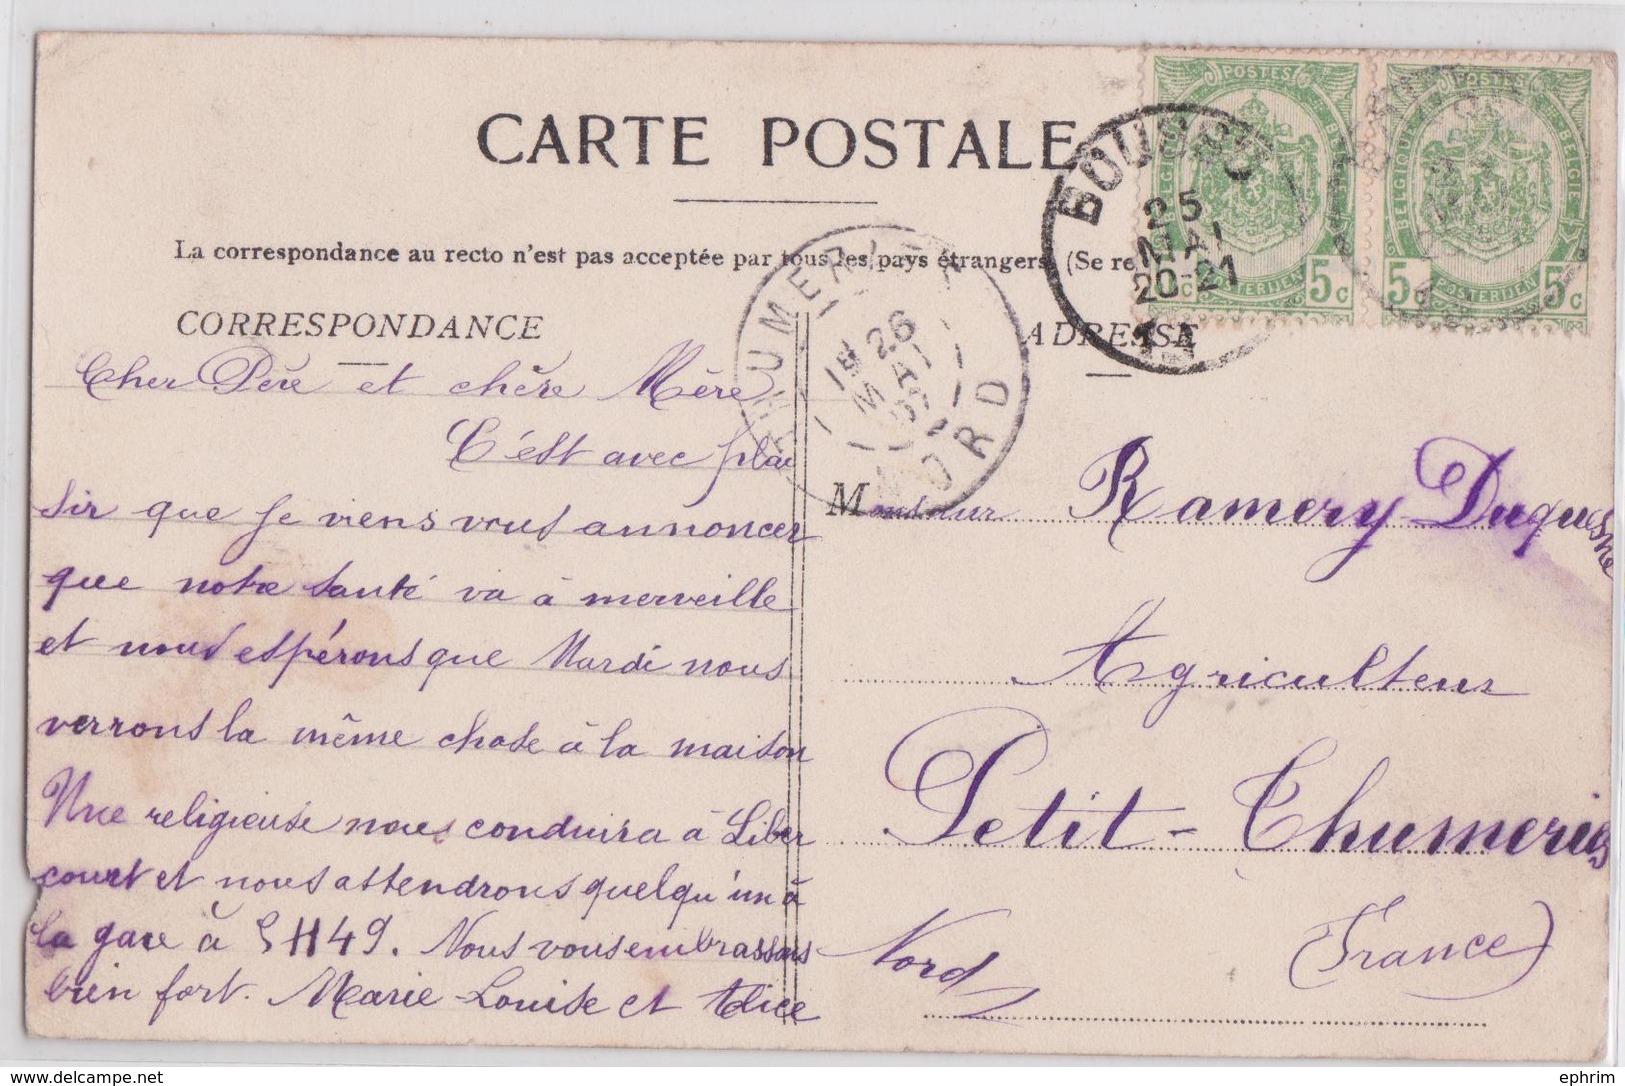 CARTE POSTALE
La correspondance au recto n'est pas acceptée par tous les pays étrangers (Se re
CORRESPONDANCE
Cher Père et chère Mère
C'est avec plai
sir que je viens vous annoncer
que notre santé va à merveille
et nous espérons que Mardi nous
verrons la même chose à la maison
Une religieuse nous conduira à Liber
court et nous attendrons quelqu'un à
la gare à 5H49. Nous vous embrassons
bien fort. Marie-Louise et Alice
ADRESSE
Monsieur Ramery-Duquesne
Agriculteur
Petit-Thumeries
Nord (France)
POSTES
BELGIE
POSTERIJEN
5c
POSTES
BELGIQUE
BELGIE
POSTERIJEN
5c 5c
25
MAI
20-21
11
THUMERIES
26
MAI
NORD
delcampe.net
ephrim